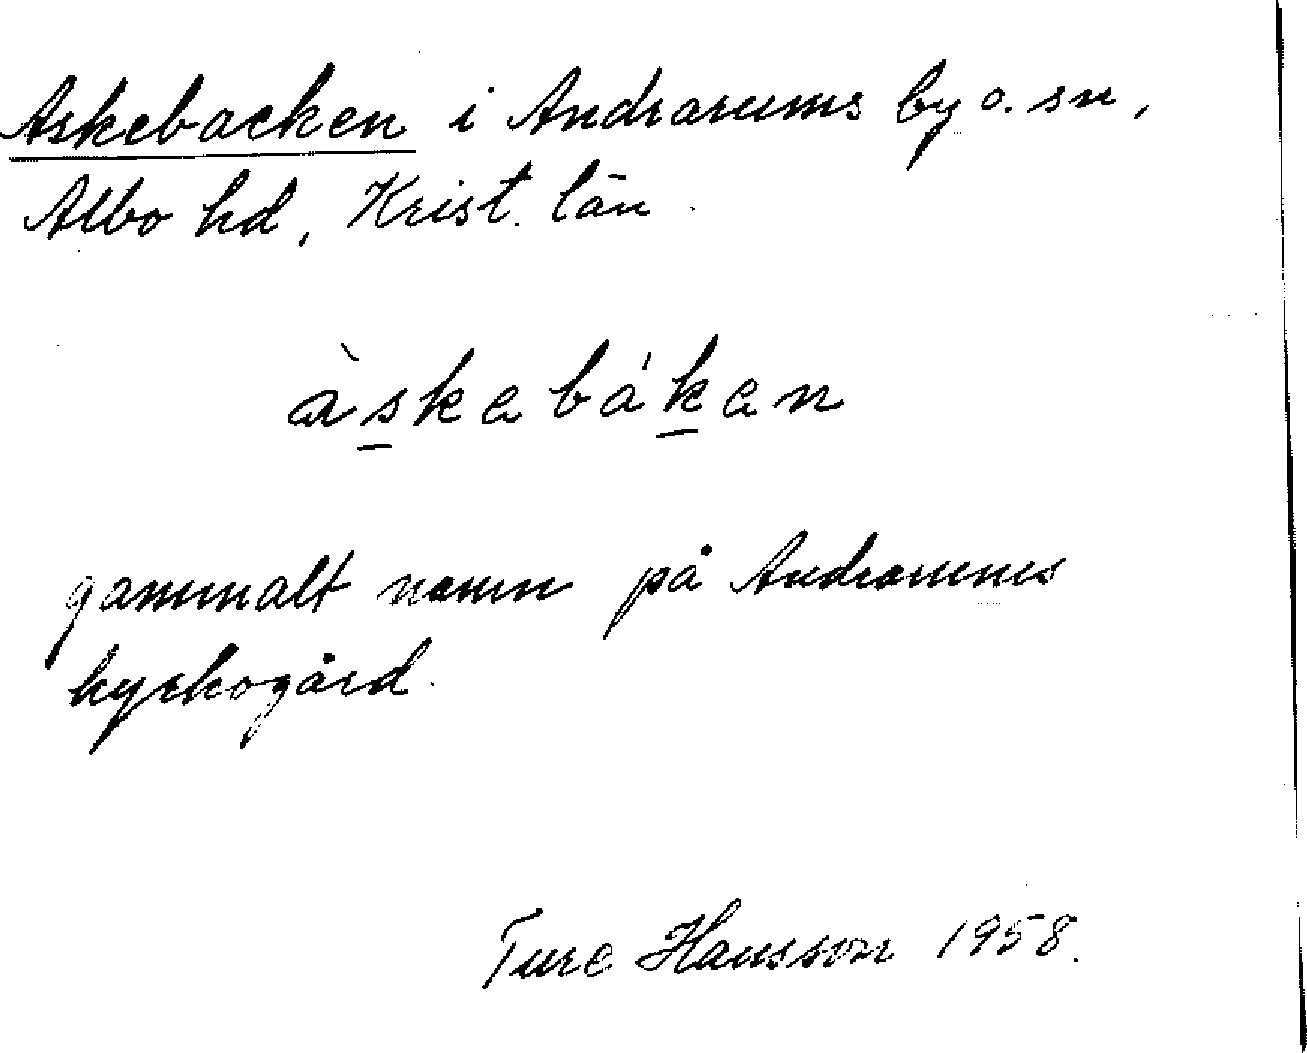 Askebacken i Andrarums by o. sn,
Albo hd, Krist. län.
àskebáken
gammalt namn på Andrarums
kyrkogård.
Ture Hansson 1958.